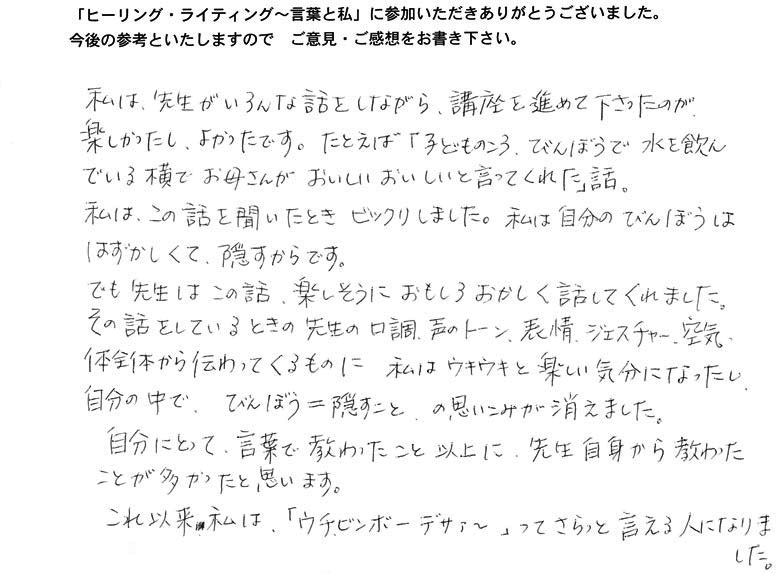 「ヒーリング・ライティング～言葉と私」に参加いただきありがとうございました。
今後の参考といたしますので　ご意見・ご感想をお書き下さい。
私は、先生がいろんな話をしながら、講座を進めて下さったのが、
楽しかったし、よかったです。たとえば「子どものころ、びんぼうで水を飲ん
でいる横でお母さんがおいしいおいしいと言ってくれた」話。
私は、この話を聞いたときビックリしました。私は自分のびんぼうは
はずかしくて、隠すからです。
でも先生はこの話、楽しそうにおもしろおかしく話してくれました。
その話をしているときの先生の口調、声のトーン、表情、ジェスチャー、空気、
体全体から伝わってくるものに　私はウキウキと楽しい気分になったし、
自分の中で、びんぼう＝隠すこと、の思いこみが消えました。
自分にとって、言葉で教わったこと以上に、先生自身から教わった
ことが多かったと思います。
これ以来、私は、「ウチ、ビンボーデサァ～」ってさらっと言える人になりま
した。